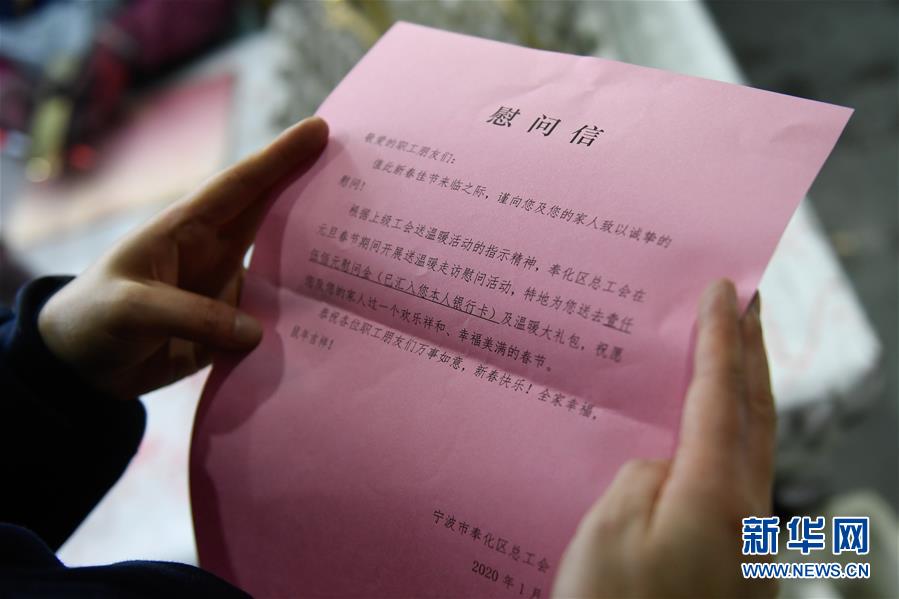 慰问信
敬爱的职工朋友们:
值此新春佳节来临之际,谨向您及您的家人致以诚挚的
慰问!
根据上级工会送温暖活动的指示精神,奉化区总工会在
元旦春节期间开展送温暖走访慰问活动,特地为您送去壹仟
伍佰元慰问金(已汇入您本人银行卡)及温暖大礼包,祝愿
您及您的家人过一个欢乐祥和、幸福美满的春节。
恭祝各位职工朋友们万事如意,新春快乐!全家幸福,
鼠年吉祥!
宁波市奉化区总工会
2020年1月
新华网
WWW.NEWS.CN